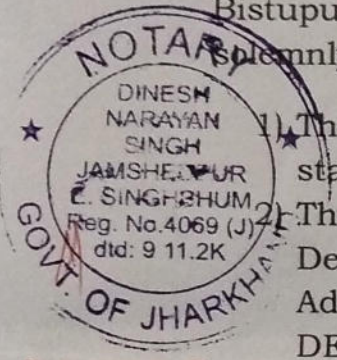 Bistupu
solemnly
NOTARY
DINESH
NARAYAN
SINGH
JAMSHEDPUR
E. SINGHBHUM
Reg. No.4069 (J)
dtd: 9 11.2K
GOVT. OF JHARKHAND
1) Th
sta
2) Th
De
Ad
DE